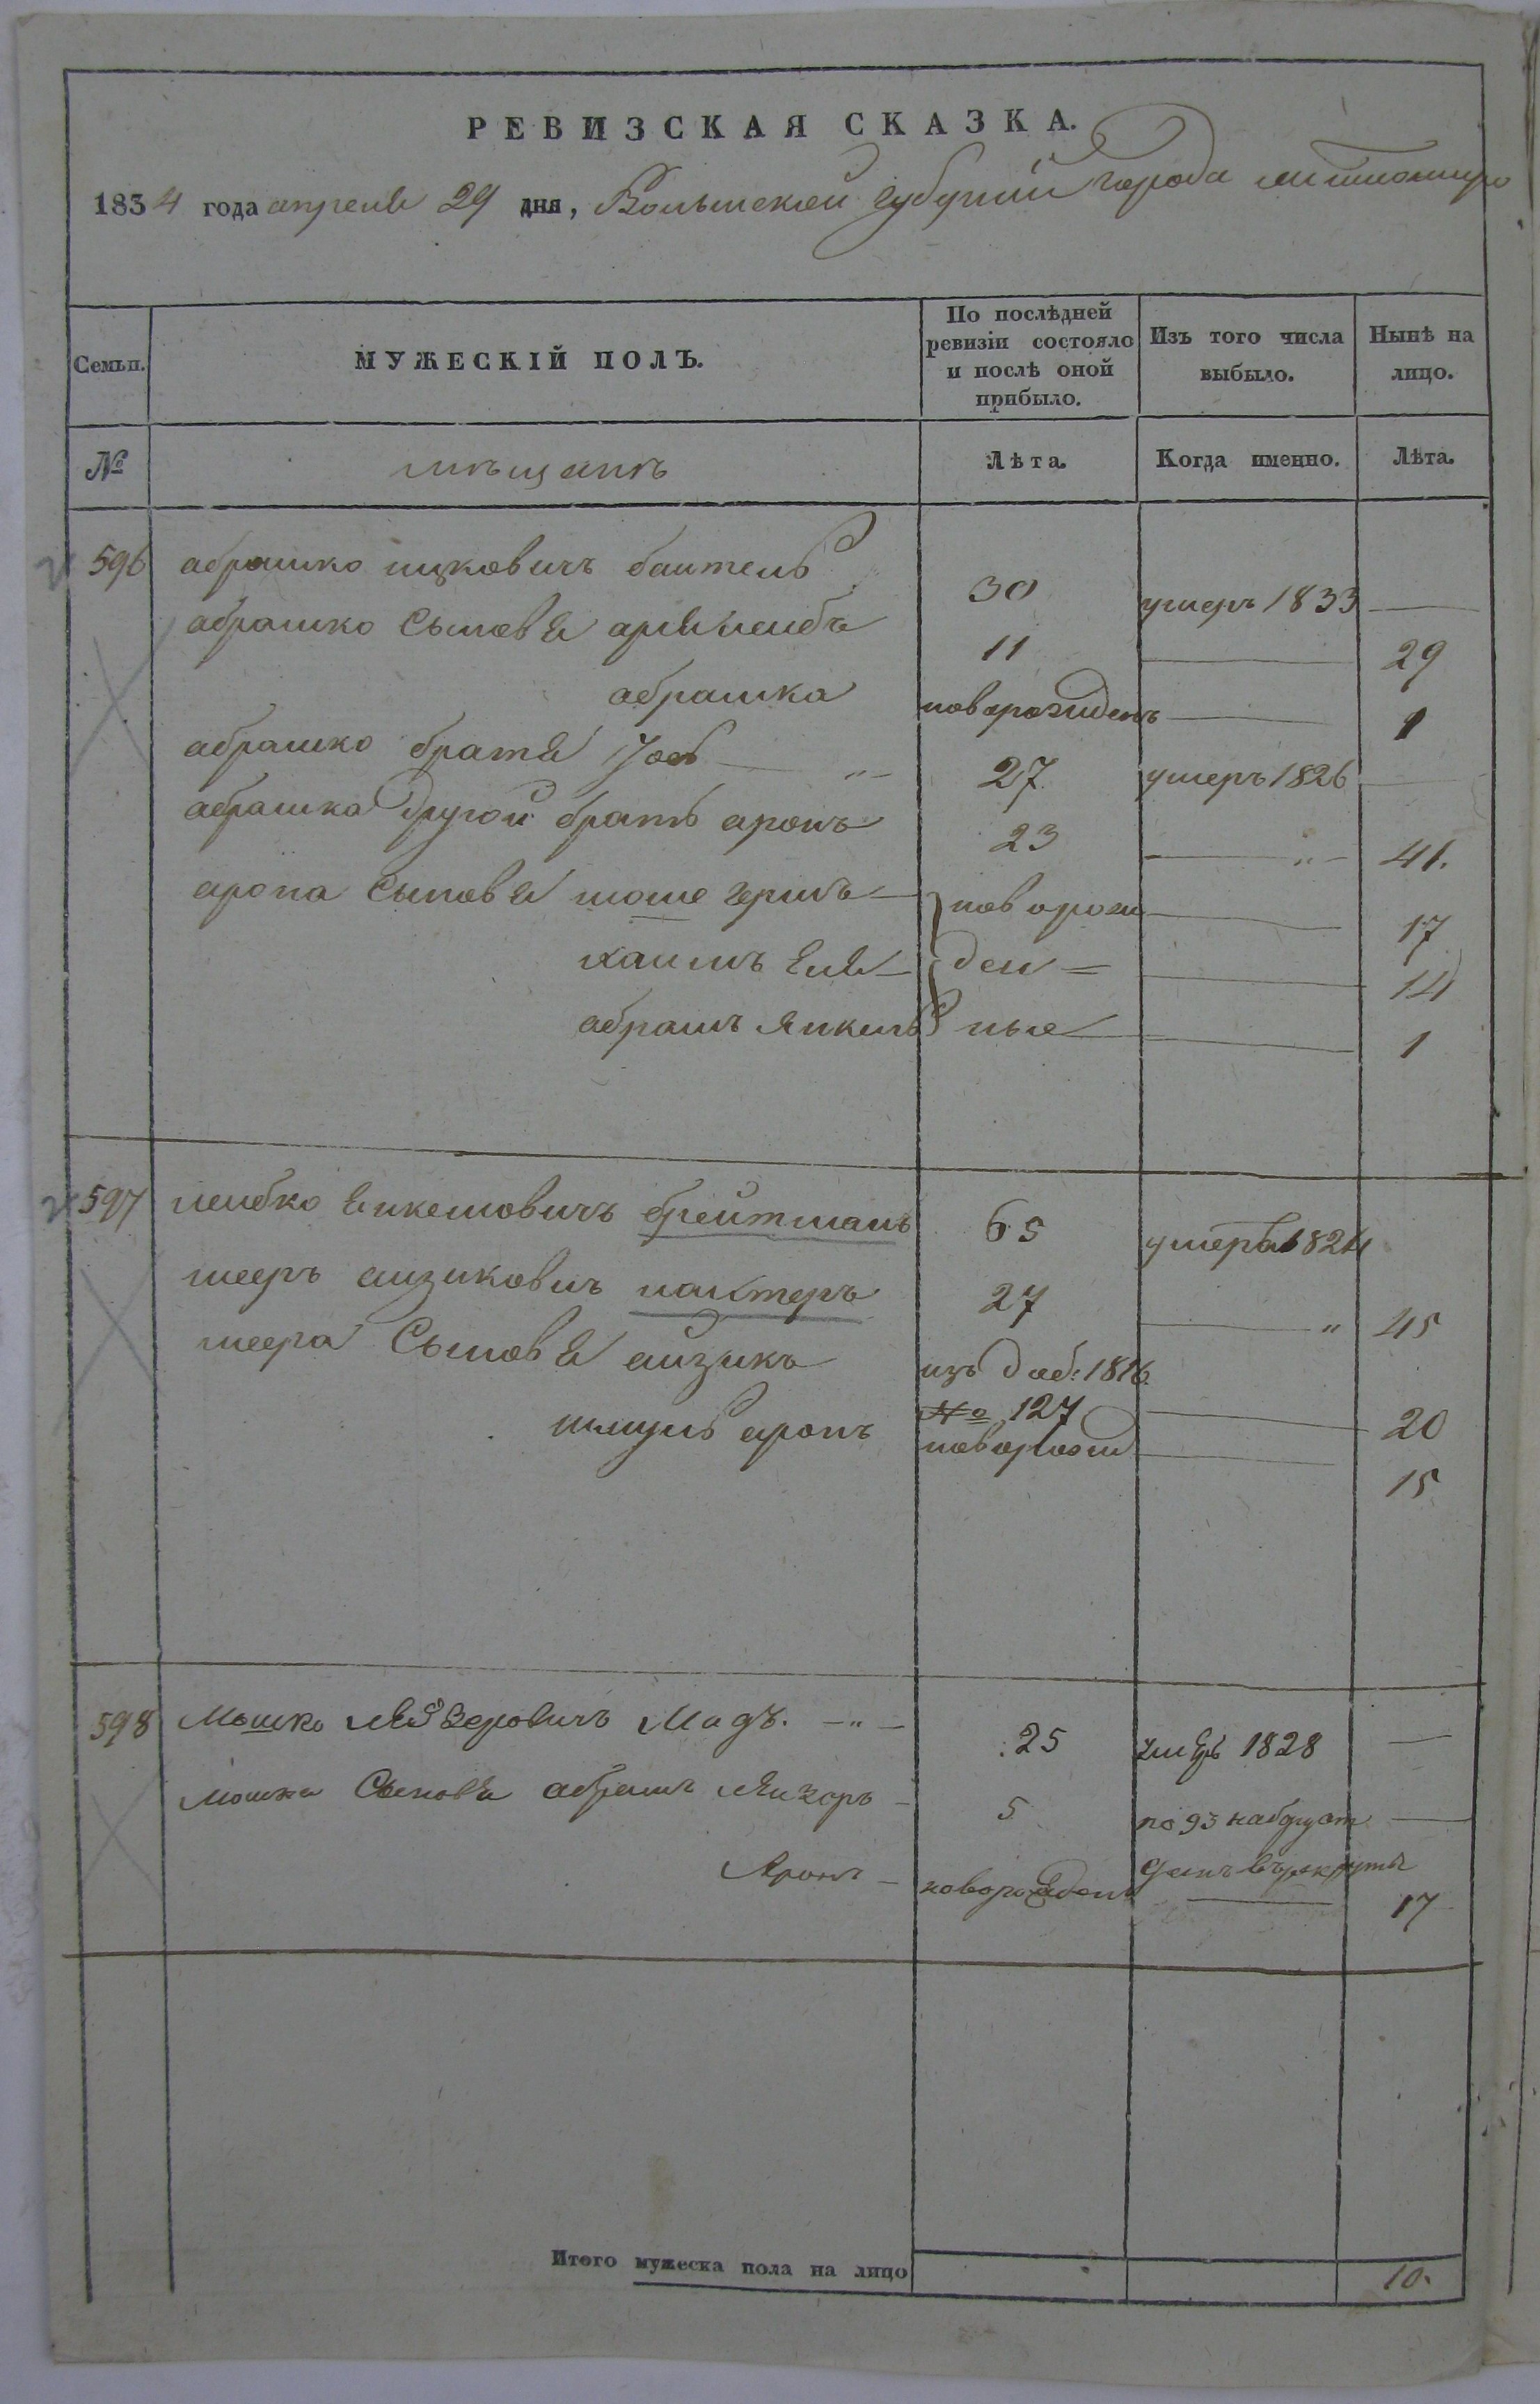 РЕВИЗСКАЯ СКАЗКА.
1834 года апреля 29 дня, Волынской губернии города житомира
Семьи.
МУЖЕСКІЙ ПОЛЪ.
По послѣдней ревизіи состояло и послѣ оной прибыло.
Изъ того числа выбыло.
Нынѣ на лицо.
№
мѣщанъ
Лѣта.
Когда именно.
Лѣта.
596 абрашко ицковичъ 30 умеръ 1833 —
абрашко сыновя 11 — 29
абрашка новорожденъ — 1
абрашко братя 27 умеръ 1826 —
абрашка другой братъ аронъ 23 — " — 41.
арона сыновя гершъ — новорож — 17
хаимъ — ден= — 14
абрамъ янкель ные — 1
597 лейбко брейтманъ 65 умеръ 1824
мееръ айзиковичъ 27 — " 45
меера сыновя айзикъ изъ доб: 1816
№ 127 — 20
шмуль аронъ новорож — 15
598 Мошко —"— 25 умеръ 1828 —
мошка сыновя абрамъ — 5 по 93 набору от —
данъ въ рекруты
Аронъ — новорожденъ — 17
Итого мужеска пола на лицо 10.